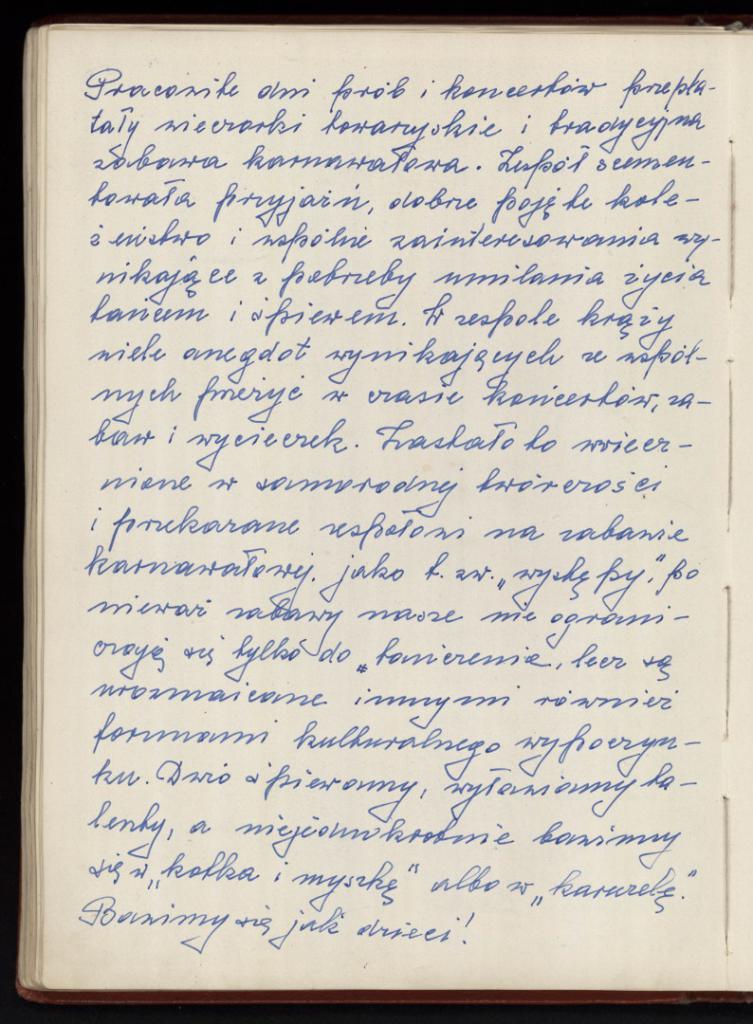 Pracowite dni prób i koncertów przepla-
tały wieczorki towarzyskie i tradycyjna
zabawa karnawałowa. Zespół scemen-
towała przyjaźń, dobrze pojęte kole-
żeństwo i wspólne zainteresowania wy-
nikające z potrzeby umilania życia
tańcem i śpiewem. W zespole krąży
wiele anegdot wynikających ze wspól-
nych przeżyć w czasie koncertów, za-
baw i wycieczek. Zostało to uwiecz-
nione w samorodnej twórczości
i przekazane zespołowi na zabawie
karnawałowej. jako t. zw. „występy", po
nieważ zabawy nasze nie ograni-
czają się tylko do „tańczenia, lecz są
urozmaicane innymi również
formami kulturalnego wypoczyn-
ku. Dużo śpiewamy, wyławiamy ta-
lenty, a niejednokrotnie bawimy
się w „kotka i myszkę" albo w „karuzelę."
Bawimy się jak dzieci!